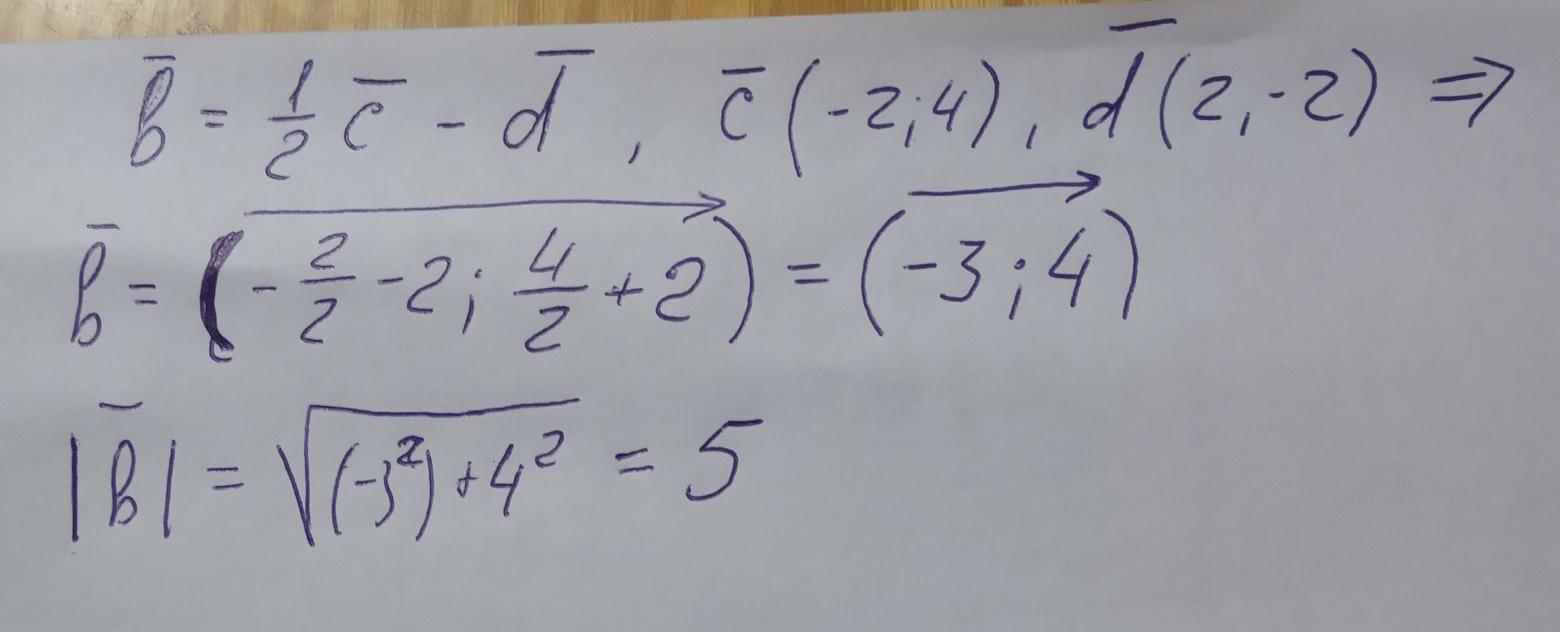 b̄ = 1/2 c̄ - d̄, c̄(-2;4), d̄(2,-2) ⇒
b̄ = (-2/2 -2; 4/2 +2) = (-3;4)
|b̄| = √((-3²)+4²) = 5